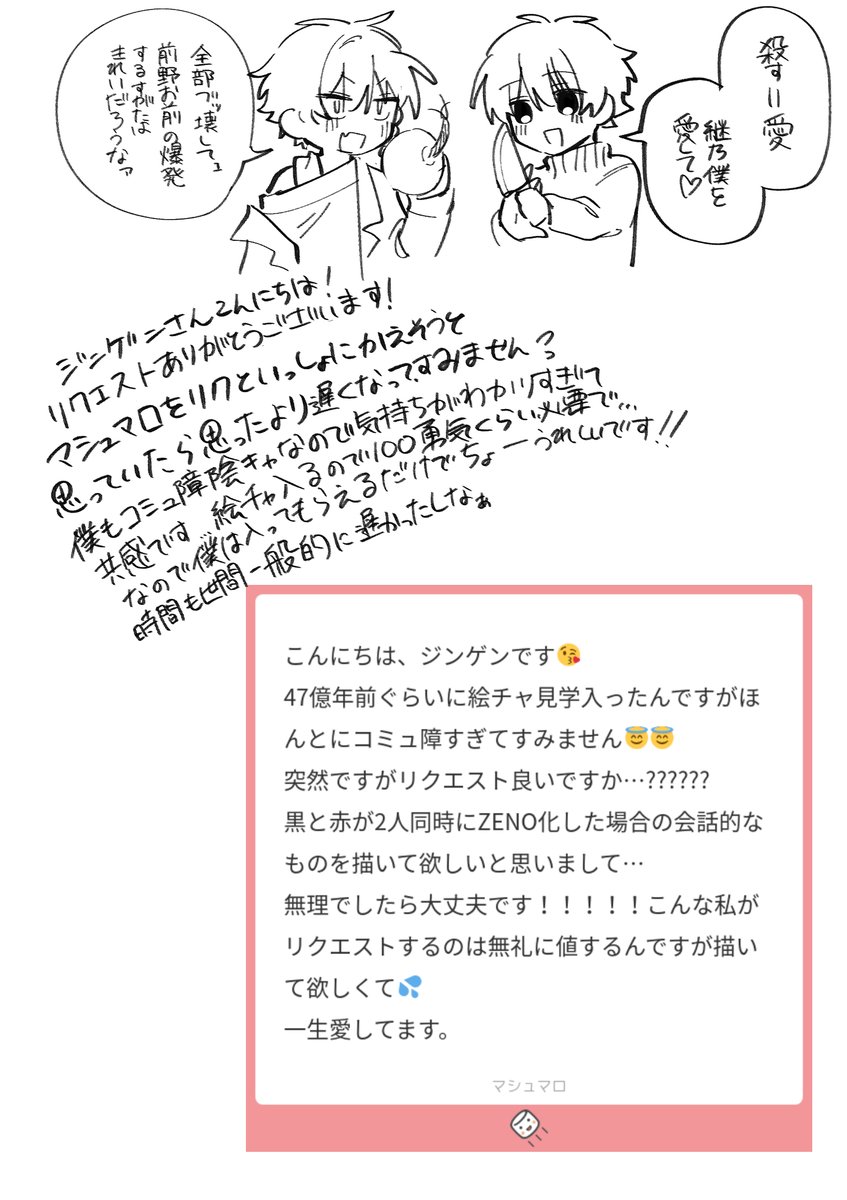 殺す=愛
継乃僕を
愛して♡
全部ブッ壊してェ
前野お前の爆発
するすがたは
きれいだろうなァ
ジンゲンさんこんにちは!
リクエストありがとうございます!
マシュマロをリクといっしょにかえそうと
思っていたら思ったより遅くなってすみません
僕もコミュ障陰キャなので気持ちがわかりすぎて
共感です 絵チャ入るので100勇気くらい必要で…
なので僕は入ってもらえるだけでちょーうれしいです!!
時間も世間一般的に遅かったしなぁ
こんにちは、ジンゲンです😘
47億年前ぐらいに絵チャ見学入ったんですがほ
んとにコミュ障すぎてすみません😇😇
突然ですがリクエスト良いですか…??????
黒と赤が2人同時にZENO化した場合の会話的な
ものを描いて欲しいと思いまして…
無理でしたら大丈夫です！！！！！こんな私が
リクエストするのは無礼に値するんですが描い
て欲しくて💦
一生愛してます。
マシュマロ